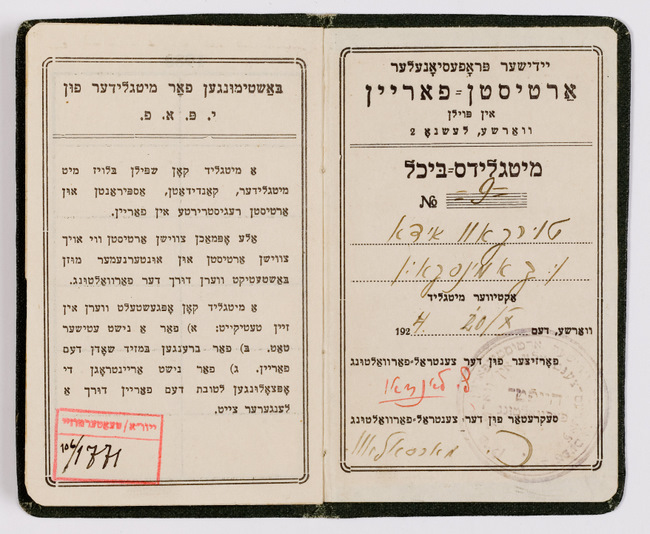 באַשטימונגען פאַר מיטגלידער פון
י. פּ. א. פ.
א מיטגליד קאָן שפּילן בלויז מיט
מיטגלידער, קאַנדידאַטן, אַספּיראַנטן און
אַרטיסטן רעגיסטרירטע אין פאַריין.
אַלע אָפּמאַכן צווישן אַרטיסטן ווי אויך
צווישן אַרטיסטן און אונטערנעמער מוזן
באַשטעטיקט ווערן דורך דער פאַרוואַלטונג.
א מיטגליד קאָן אָפּגעשטעלט ווערן אין
זיין טעטיקייט: א) פאַר אַ נישט עטישער
טאַט. ב) פאַר ברענגען במזיד שאָדן דעם
פאַריין. ג) פאַר נישט אַריינטראָגן די
אָפּצאָלונגען לטובת דעם פאַריין דורך אַ
לענגערער צייט.
ייוו״אָ/טעאַטער-מוזיי
106/1771
יידישער פּראָפעסיאָנעלער
אַרטיסטן=פאַריין
אין פּוילן
וואַרשע, לעשנאָ 2
מיטגלידס=ביכל
№ -9-
טורקאוו אידא
אַקטיווער מיטגליד
וואַרשע, דעם 20/X 1924
פאָרזיצער פון דער צענטראַל-פאַרוואַלטונג
סעקרעטאַר פון דער צענטראַל-פאַרוואַלטונג